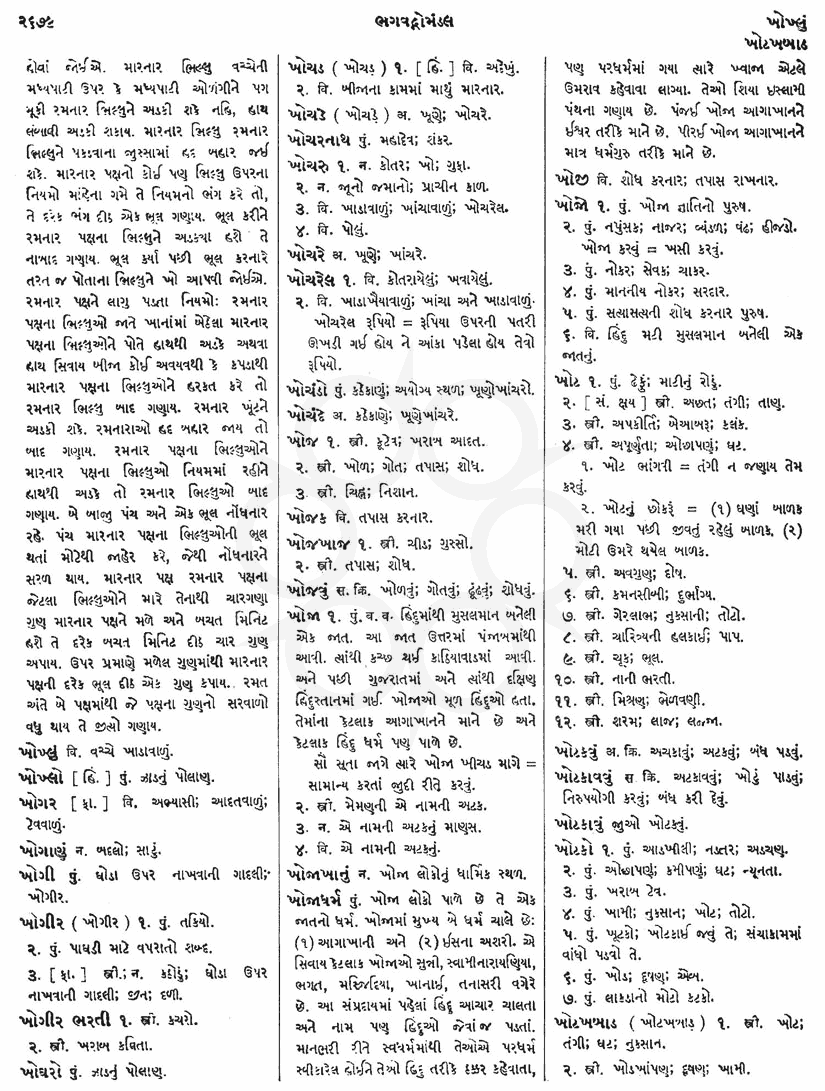 ૨૬૭૯
ભગવદ્ગોમંડલ
ખોખ્લું
ખોટખબાડ
હોવાં જોઈએ. મારનાર ભિલ્લુ વચ્ચેની
મધ્યપાટી ઉપર કે મધ્યપાટી ઓળંગીને પગ
મૂકી રમનાર ભિલ્લુને અડકી શકે નહિ, હાથ
લંબાવી અડકી શકાય. મારનાર ભિલ્લુ રમનાર
ભિલ્લુને પકડવાના જુસ્સામાં હદ બહાર જઈ
શકે. મારનાર પક્ષનો કોઈ પણ ભિલ્લુ ઉપરના
નિયમો માંહેના ગમે તે નિયમનો ભંગ કરે તો,
તે દરેક ભંગ દીઠ એક ભૂલ ગણાય. ભૂલ કરીને
રમનાર પક્ષના ભિલ્લુને અડક્યા હશે તે
નાબાદ ગણાય. ભૂલ કર્યા પછી ભૂલ કરનારે
તરત જ પોતાના ભિલ્લુને ખો આપવી જોઈએ.
રમનાર પક્ષને લાગુ પડતા નિયમો: રમનાર
પક્ષના ભિલ્લુઓ જાતે ખાનાંમાં બેઠેલા મારનાર
પક્ષના ભિલ્લુઓને પોતે હાથથી અડકે અથવા
હાથ સિવાય બીજા કોઈ અવયવથી કે કપડાથી
મારનાર પક્ષના ભિલ્લુઓને હરકત કરે તો
રમનાર ભિલ્લુ બાદ ગણાય. રમનાર ખૂંટને
અડકી શકે. રમનારાઓ હદ બહાર જાય તો
બાદ ગણાય. રમનાર પક્ષના ભિલ્લુઓને
મારનાર પક્ષના ભિલ્લુઓ નિયમમાં રહીને
હાથથી અડકે તો રમનાર ભિલ્લુઓ બાદ
ગણાય. બે બાજુ પંચ અને એક ભૂલ નોંધનાર
રહે. પંચ મારનાર પક્ષના ભિલ્લુઓની ભૂલ
થતાં મોટેથી જાહેર કરે, જેથી નોંધનારને
સરળ થાય. મારનાર પક્ષ રમનાર પક્ષના
જેટલા ભિલ્લુઓને મારે તેનાથી ચારગણા
ગુણ મારનાર પક્ષને મળે અને બચત મિનિટ
હશે તે દરેક બચત મિનિટ દીઠ ચાર ગુણ
અપાય. ઉપર પ્રમાણે મળેલ ગુણમાંથી મારનાર
પક્ષની દરેક ભૂલ દીઠ એક ગુણ કપાય. રમત
અંતે બે પક્ષમાંથી જે પક્ષના ગુણનો સરવાળો
વધુ થાય તે જીત્યો ગણાય.
ખોખ્લું વિ. વચ્ચે ખાડાવાળું.
ખોખ્લો [ હિં. ] પું. ઝાડનું પોલાણ.
ખોગર [ ફા. ] વિ. અભ્યાસી; આદતવાળું;
ટેવવાળું.
ખોગાણું ન. બદલો; સાટું.
ખોગી પું. ઘોડા ઉપર નાખવાની ગાદલી;
ખોગીર.
ખોગીર ( ખોગીર ) ૧. પું. તકિયો.
૨. પું. પાઘડી માટે વપરાતો શબ્દ.
૩. [ ફા. ] સ્ત્રી.; ન. કઠોઠું; ઘોડા ઉપર
નાખવાની ગાદલી; જીન; દળી.
ખોગીર ભરતી ૧. સ્ત્રી. કચરો.
૨. સ્ત્રી. ખરાબ કવિતા.
ખોચરો પું. ઝાડનું પોલાણ.
ખોચડ ( ખોચડ઼ ) ૧. [ હિં. ] વિ. અદેખું.
૨. વિ. બીજાના કામમાં માથું મારનાર.
ખોચડે ( ખોચડ઼ે ) અ. ખૂણે; ખોચરે.
ખોચરનાથ પું. મહાદેવ; શંકર.
ખોચરું ૧. ન. કોતર; ખો; ગુફા.
૨. ન. જૂનો જમાનો; પ્રાચીન કાળ.
૩. વિ. ખાડાવાળું; ખાંચાવાળું; ખોચરેલ.
૪. વિ. પોલું.
ખોચરે અ. ખૂણે; ખાંચરે.
ખોચરેલ ૧. વિ. કોતરાયેલું; ખવાયેલું.
૨. વિ. ખાડાખૈયાવાળું; ખાંચા અને ખાડાવાળું.
ખોચરેલ રૂપિયો = રૂપિયા ઉપરની પતરી
ઊખડી ગઈ હોય ને આંકા પડેલા હોય તેવો
રૂપિયો.
ખોચંડો પું. કઠેકાણું; અયોગ્ય સ્થળ; ખૂણોખાંચરો.
ખોચંદે અ. કઠેકાણે; ખૂણેખાંચરે.
ખોજ ૧. સ્ત્રી. કૂટેવ; ખરાબ આદત.
૨. સ્ત્રી. ખોળ; ગોત; તપાસ; શોધ.
૩. સ્ત્રી. ચિહ્ન; નિશાન.
ખોજક વિ. તપાસ કરનાર.
ખોજખાજ ૧. સ્ત્રી. ચીડ; ગુસ્સો.
૨. સ્ત્રી. તપાસ; શોધ.
ખોજવું સ. ક્રિ. ખોળવું; ગોતવું; ઢૂંઢવું; શોધવું.
ખોજા ૧. પું. બ. વ. હિંદુમાંથી મુસલમાન બનેલી
એક જાત. આ જાત ઉત્તરમાં પંજાબમાંથી
આવી. ત્યાંથી કચ્છ થઈ કાઠિયાવાડમાં આવી.
અને પછી ગુજરાતમાં અને ત્યાંથી દક્ષિણ
હિંદુસ્તાનમાં ગઈ. ખોજાઓ મૂળ હિંદુઓ હતા.
તેમાંના કેટલાક આગાખાનને માને છે અને
કેટલાક હિંદુ ધર્મ પણ પાળે છે.
સૌ સૂના જાગે ત્યારે ખોજા ખીચડ માગે =
સામાન્ય કરતાં જુદી રીતે કરવું.
૨. સ્ત્રી. મેમણની એ નામની અટક.
૩. ન. એ નામની અટકનું માણસ.
૪. વિ. એ નામની અટકનું.
ખોજાખાનું ન. ખોજા લોકોનું ધાર્મિક સ્થળ.
ખોજાધર્મ પું. ખોજા લોકો પાળે છે તે એક
જાતનો ધર્મ. ખોજામાં મુખ્ય બે ધર્મ ચાલે છે:
(૧) આગાખાની અને (૨) ઈસના અશરી. એ
સિવાય કેટલાક ખોજાઓ સુન્ની, સ્વામીનારાયણિયા,
ભગત, મસ્જિદિયા, ખાનાઈ, તનાસરી વગેરે
છે. આ સંપ્રદાયમાં પહેલાં હિંદુ આચાર ચાલતા
અને નામ પણ હિંદુઓ જેવાં જ પડતાં.
માનભરી રીતે સ્વધર્મમાંથી તેઓએ પરધર્મ
સ્વીકારેલ હોઈને તેઓ હિંદુ તરીકે ઠક્કર કહેવાતા,
પણ પરધર્મમાં ગયા ત્યારે ખ્વાજા એટલે
ઉમરાવ કહેવાવા લાગ્યા. તેઓ શિયા ઇસ્લામી
પંથના ગણાય છે. પંજઈ ખોજા આગાખાનને
ઈશ્વર તરીકે માને છે. પીરઈ ખોજા આગાખાનને
માત્ર ધર્મગુરુ તરીકે માને છે.
ખોજી વિ. શોધ કરનાર; તપાસ રાખનાર.
ખોજો ૧. પું. ખોજા જ્ઞાતિનો પુરુષ.
૨. પું. નપુંસક; નાજર; બ્યંડળ; વંઢ; હીજડો.
ખોજા કરવું = ખસી કરવું.
૩. પું. નોકર; સેવક; ચાકર.
૪. પું. માનનીય નોકર; સરદાર.
૫. પું. સત્યાસત્યની શોધ કરનાર પુરુષ.
૬. વિ. હિંદુ મટી મુસલમાન બનેલી એક
જાતનું.
ખોટ ૧. પું. ઢેફું; માટીનું રોડું.
૨. [ સં. ક્ષય ] સ્ત્રી. અછત; તંગી; તાણ.
૩. સ્ત્રી. અપકીર્તિ; બેઆબરૂ; કલંક.
૪. સ્ત્રી. અપૂર્ણતા; ઓછાપણું; ઘટ.
૧. ખોટ ભાંગવી = તંગી ન જણાય તેમ
કરવું.
૨. ખોટનું છોકરું = (૧) ઘણાં બાળક
મરી ગયા પછી જીવતું રહેલું બાળક. (૨)
મોટી ઉમરે થયેલ બાળક.
૫. સ્ત્રી. અવગુણ; દોષ.
૬. સ્ત્રી. કમનસીબી; દુર્ભાગ્ય.
૭. સ્ત્રી. ગેરલાભ; નુકસાની; તોટો.
૮. સ્ત્રી. ચારિત્ર્યની હલકાઈ; પાપ.
૯. સ્ત્રી. ચૂક; ભૂલ.
૧૦. સ્ત્રી. નાની ભરતી.
૧૧. સ્ત્રી. મિશ્રણ; ભેળવણી.
૧૨. સ્ત્રી. શરમ; લાજ; લજ્જા.
ખોટકવું અ. ક્રિ. અચકાવું; અટકવું; બંધ પડવું.
ખોટકાવવું સ. ક્રિ. અટકાવવું; ખોટું પાડવું;
નિરુપયોગી કરવું; બંધ કરી દેવું.
ખોટકાવું જુઓ ખોટકવું.
ખોટકો ૧. પું. આડખીલી; નડતર; અડચણ.
૨. પું. ઓછાપણું; કમીપણું; ઘટ; ન્યૂનતા.
૩. પું. ખરાબ ટેવ.
૪. પું. ખામી; નુકસાન; ખોટ; તોટો.
૫. પું. ખૂટકો; ખોટકાઈ જવું તે; સંચાકામમાં
વાંધો પડવો તે.
૬. પું. ખોડ; દૂષણ; એબ.
૭. પું. લાકડાનો મોટો કટકો.
ખોટખબાડ ( ખોટખબાડ઼ ) ૧. સ્ત્રી. ખોટ;
તંગી; ઘટ; નુકસાન.
૨. સ્ત્રી. ખોડખાંપણ; દૂષણ; ખામી.